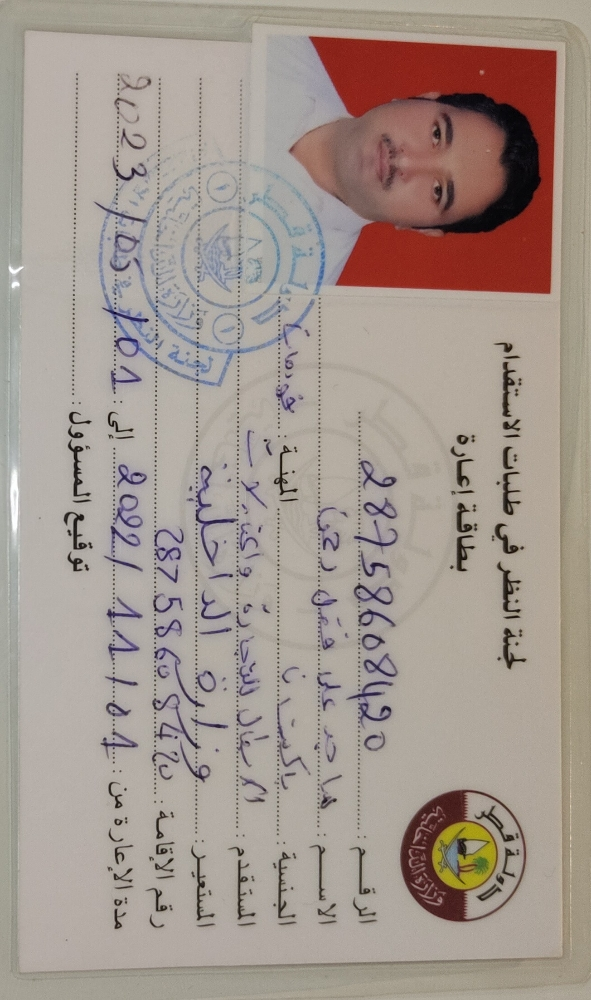 دولة قطر
وزارة الداخلية
لجنة النظر في طلبات الاستقدام
بطاقة إعارة
الرقم : 28758608420
الاسم : ماجد علي فضل رحمن
الجنسية : باكستان المهنة :
المستقدم : للتجارة
المستعير : وزارة الداخلية
رقم الإقامة : 28758608420
مدة الإعارة من : 2022/11/01 إلى : 2023/05/01
توقيع المسؤول :
دولة قطر
وزارة الداخلية